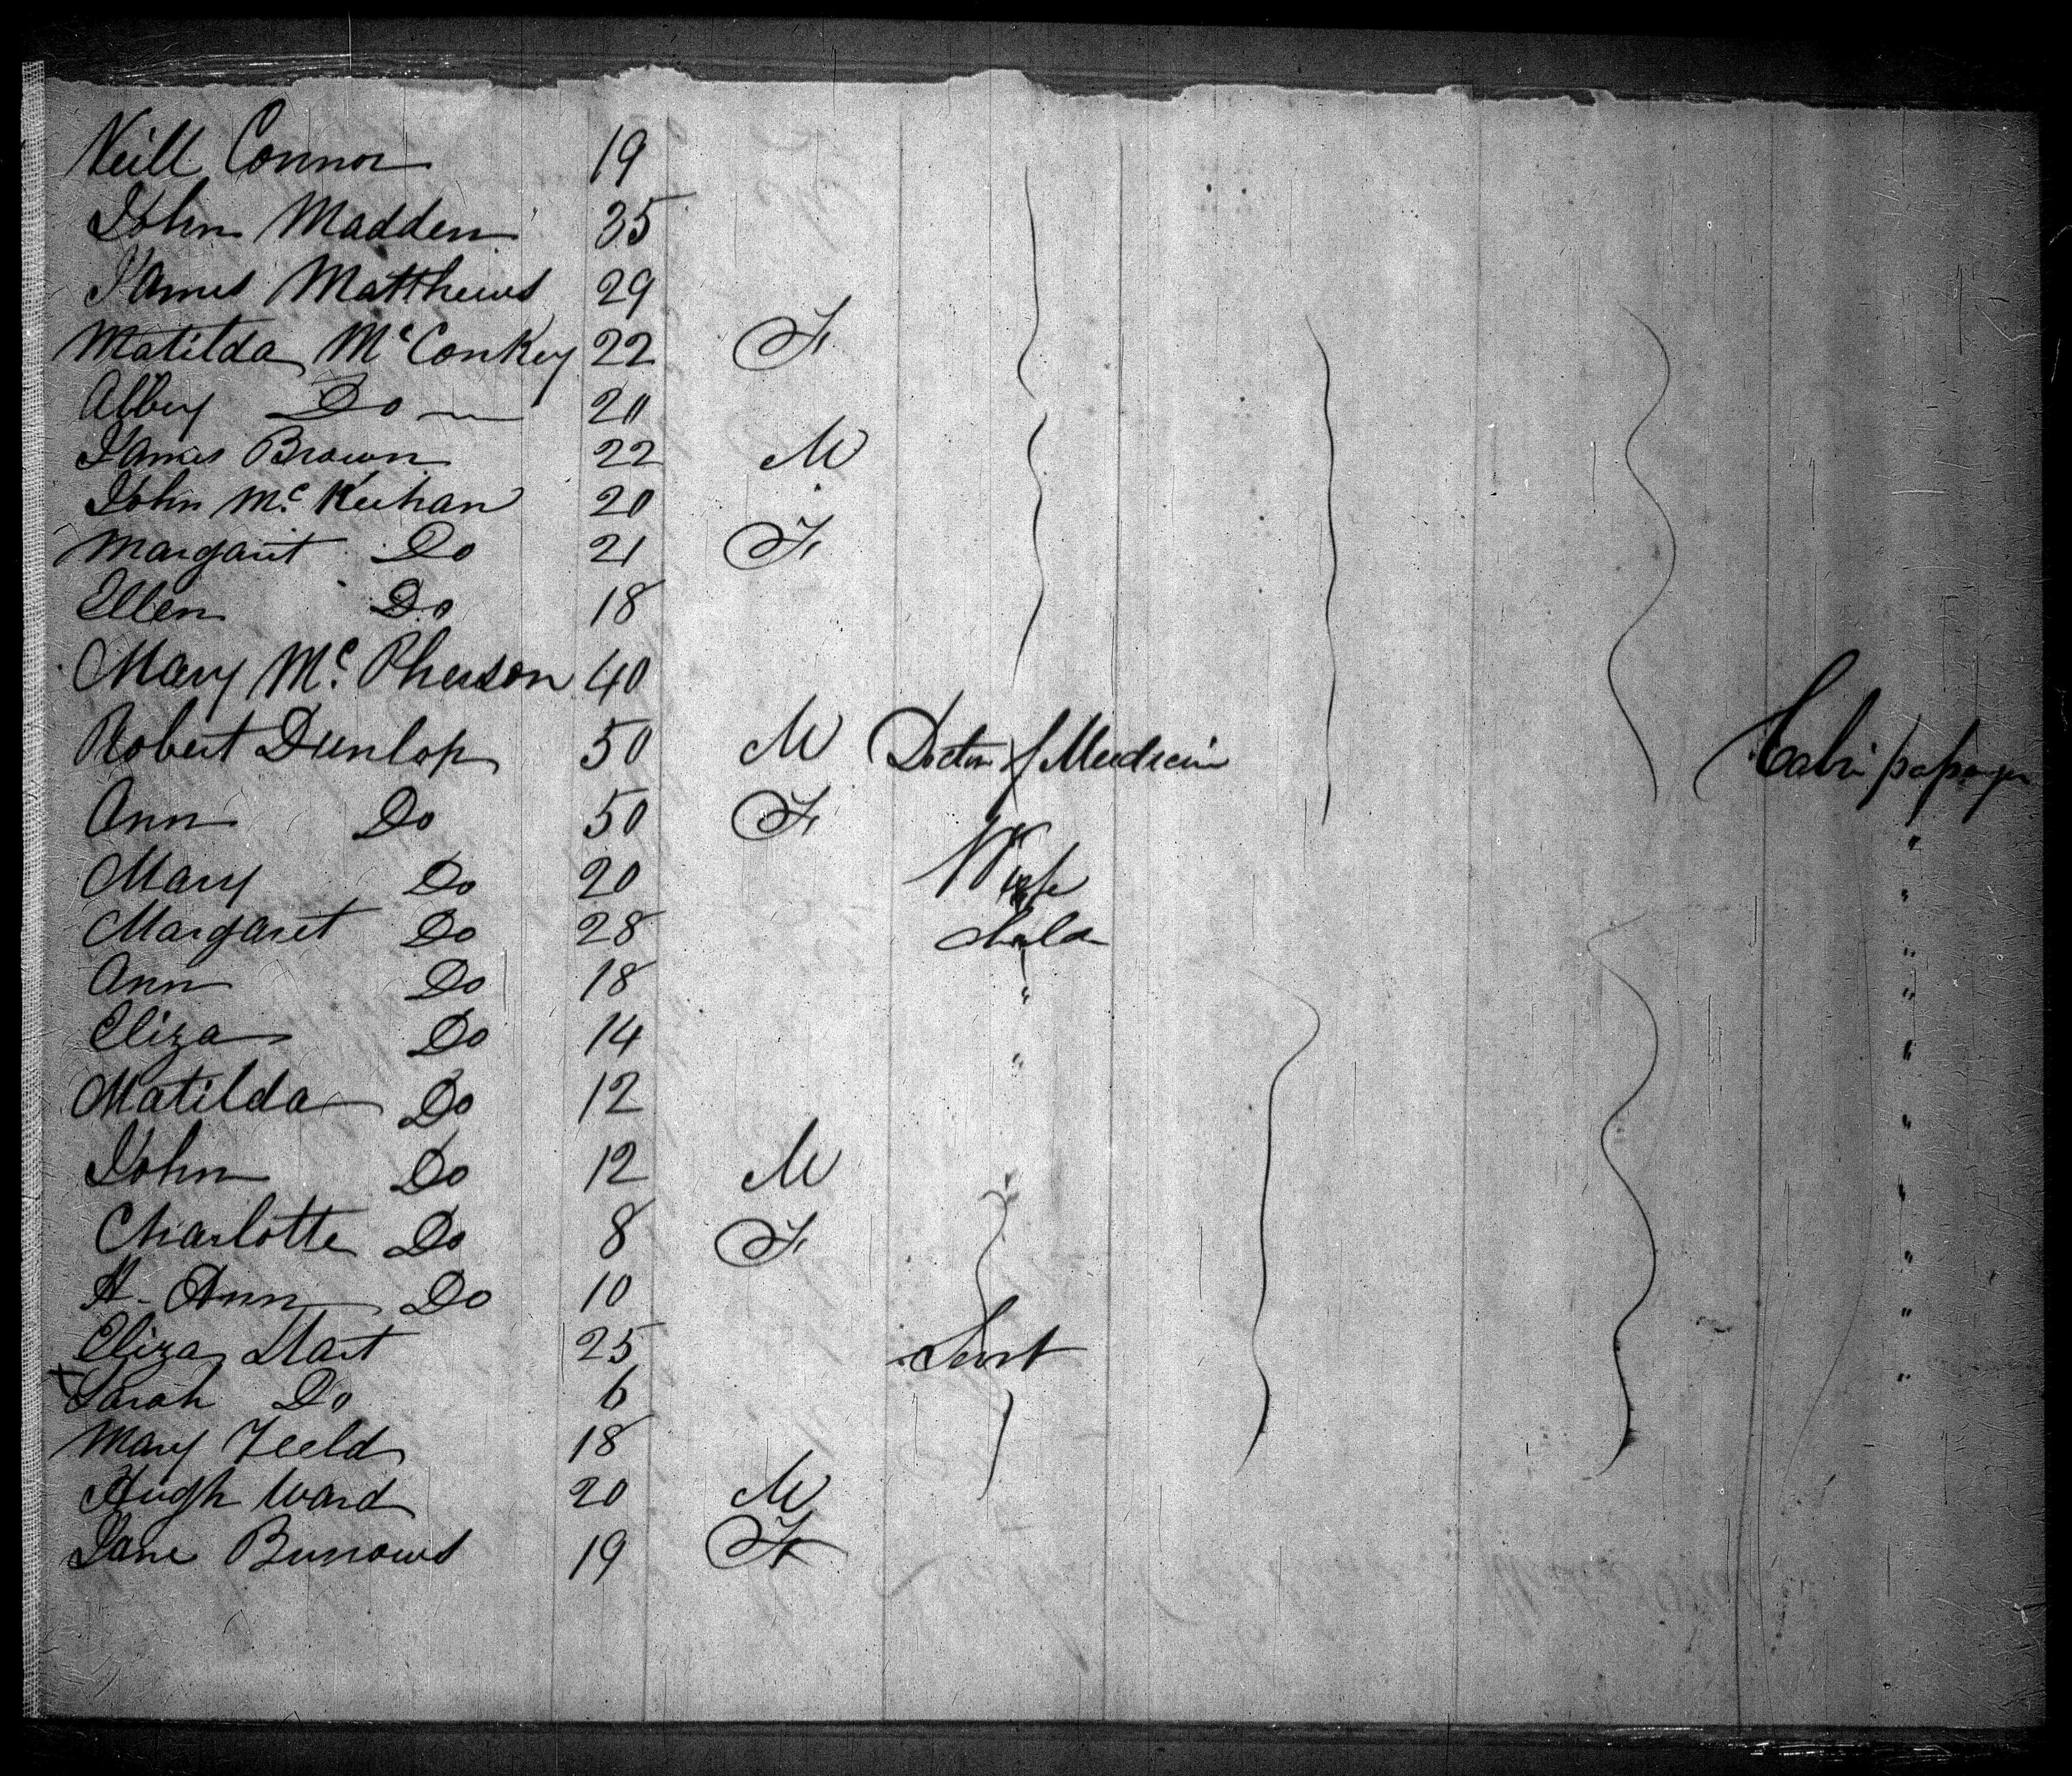 Neill Connor 19
John Madden 35
James Matthews 29
Matilda McConkey 22 F
Abby Do 20
James Brown 22 M
John McKeehan 20
Margaret Do 21 F
Ellen Do 18
Mary McPherson 40
Robert Dunlop 50 M Doctor of Meedicin Cabin passenger
Ann Do 50 F "
Mary Do 20 Wife "
Margaret Do 28 child "
Ann Do 18 " "
Eliza Do 14 " "
Matilda Do 12 "
John Do 12 M "
Charlotte Do 8 F "
H- Ann Do 10 "
Eliza 25 Servt "
Sarah Do 6
Mary Feeld 18
Hugh Ward 20 M
Jane Burrows 19 F